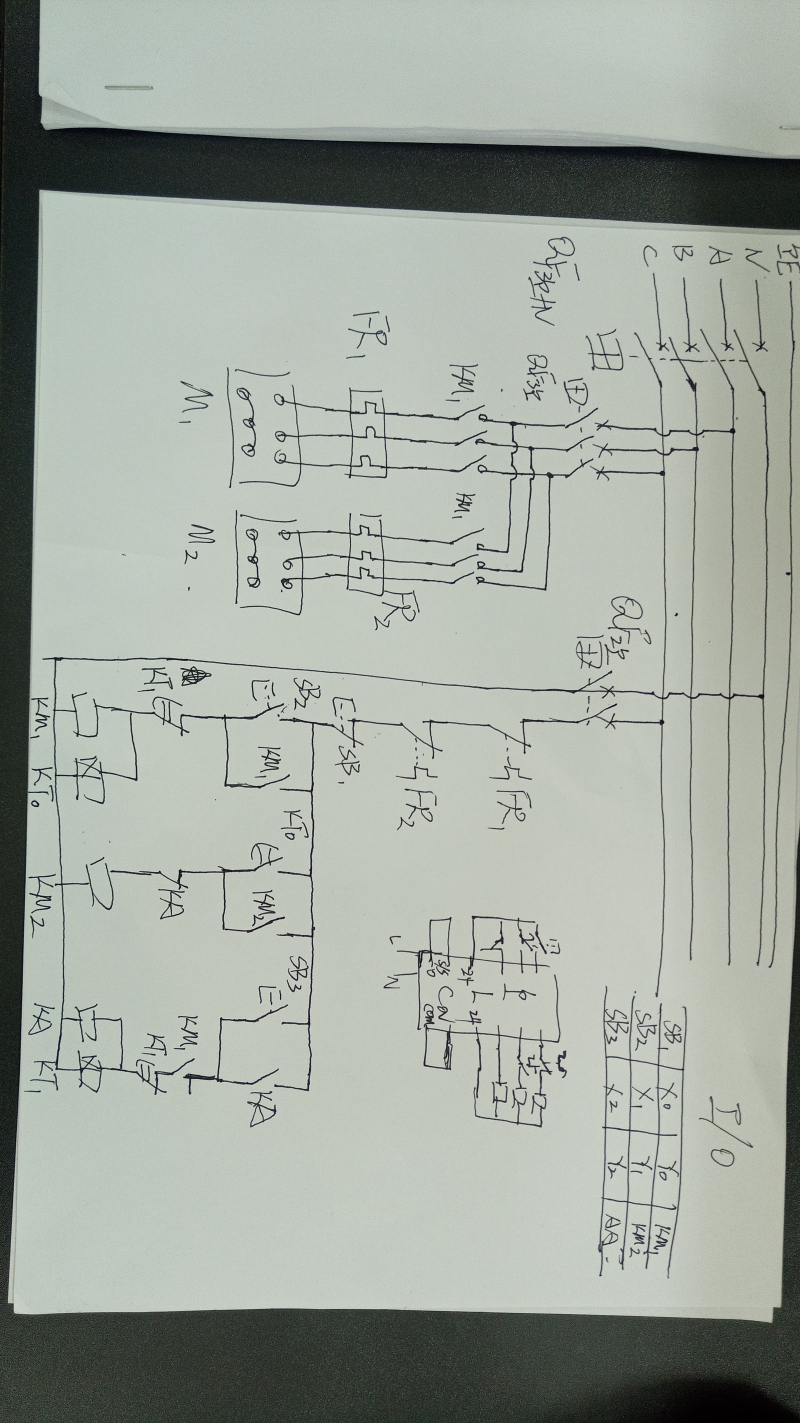 PE
N
A
B
C
QF3P+N
QF3P
KM1
KM1
FR1
FR2
M1
M2
QF2P
FR1
FR2
SB1
SB2
KM1
KT0
KM2
SB3
KA
KT1
KA
KM1
KT1
KM1
KT0
KM2
KA
KT1
L
N
COM
I/O
SB1 X0 Y0 KM1
SB2 X1 Y1 KM2
SB3 X2 Y2 AA